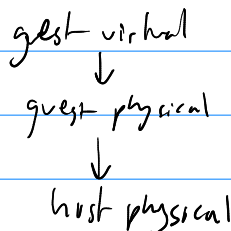 guest virtual
↓
guest physical
↓
host physical